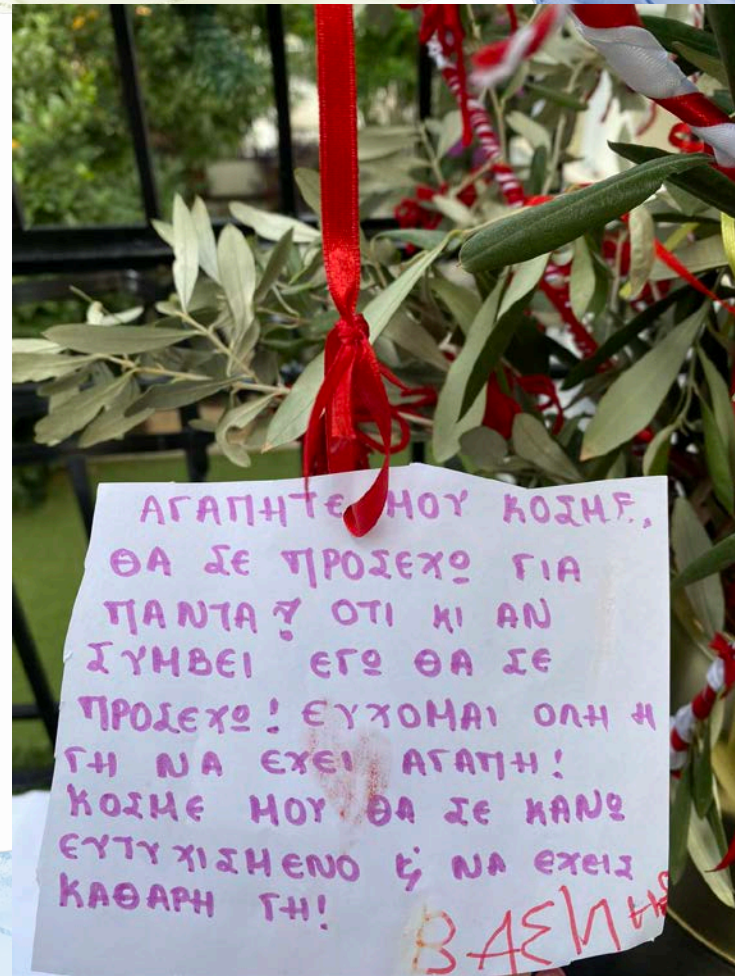 ΑΓΑΠΗΤΕ ΜΟΥ ΚΟΣΜΕ,
ΘΑ ΣΕ ΠΡΟΣΕΧΩ ΓΙΑ
ΠΑΝΤΑ! ΟΤΙ ΚΙ ΑΝ
ΣΥΜΒΕΙ ΕΓΩ ΘΑ ΣΕ
ΠΡΟΣΕΧΩ! ΕΥΧΟΜΑΙ ΟΛΗ Η
ΓΗ ΝΑ ΕΧΕΙ ΑΓΑΠΗ!
ΚΟΣΜΕ ΜΟΥ ΘΑ ΣΕ ΚΑΝΩ
ΕΥΤΥΧΙΣΜΕΝΟ & ΝΑ ΕΧΕΙΣ
ΚΑΘΑΡΗ ΓΗ!